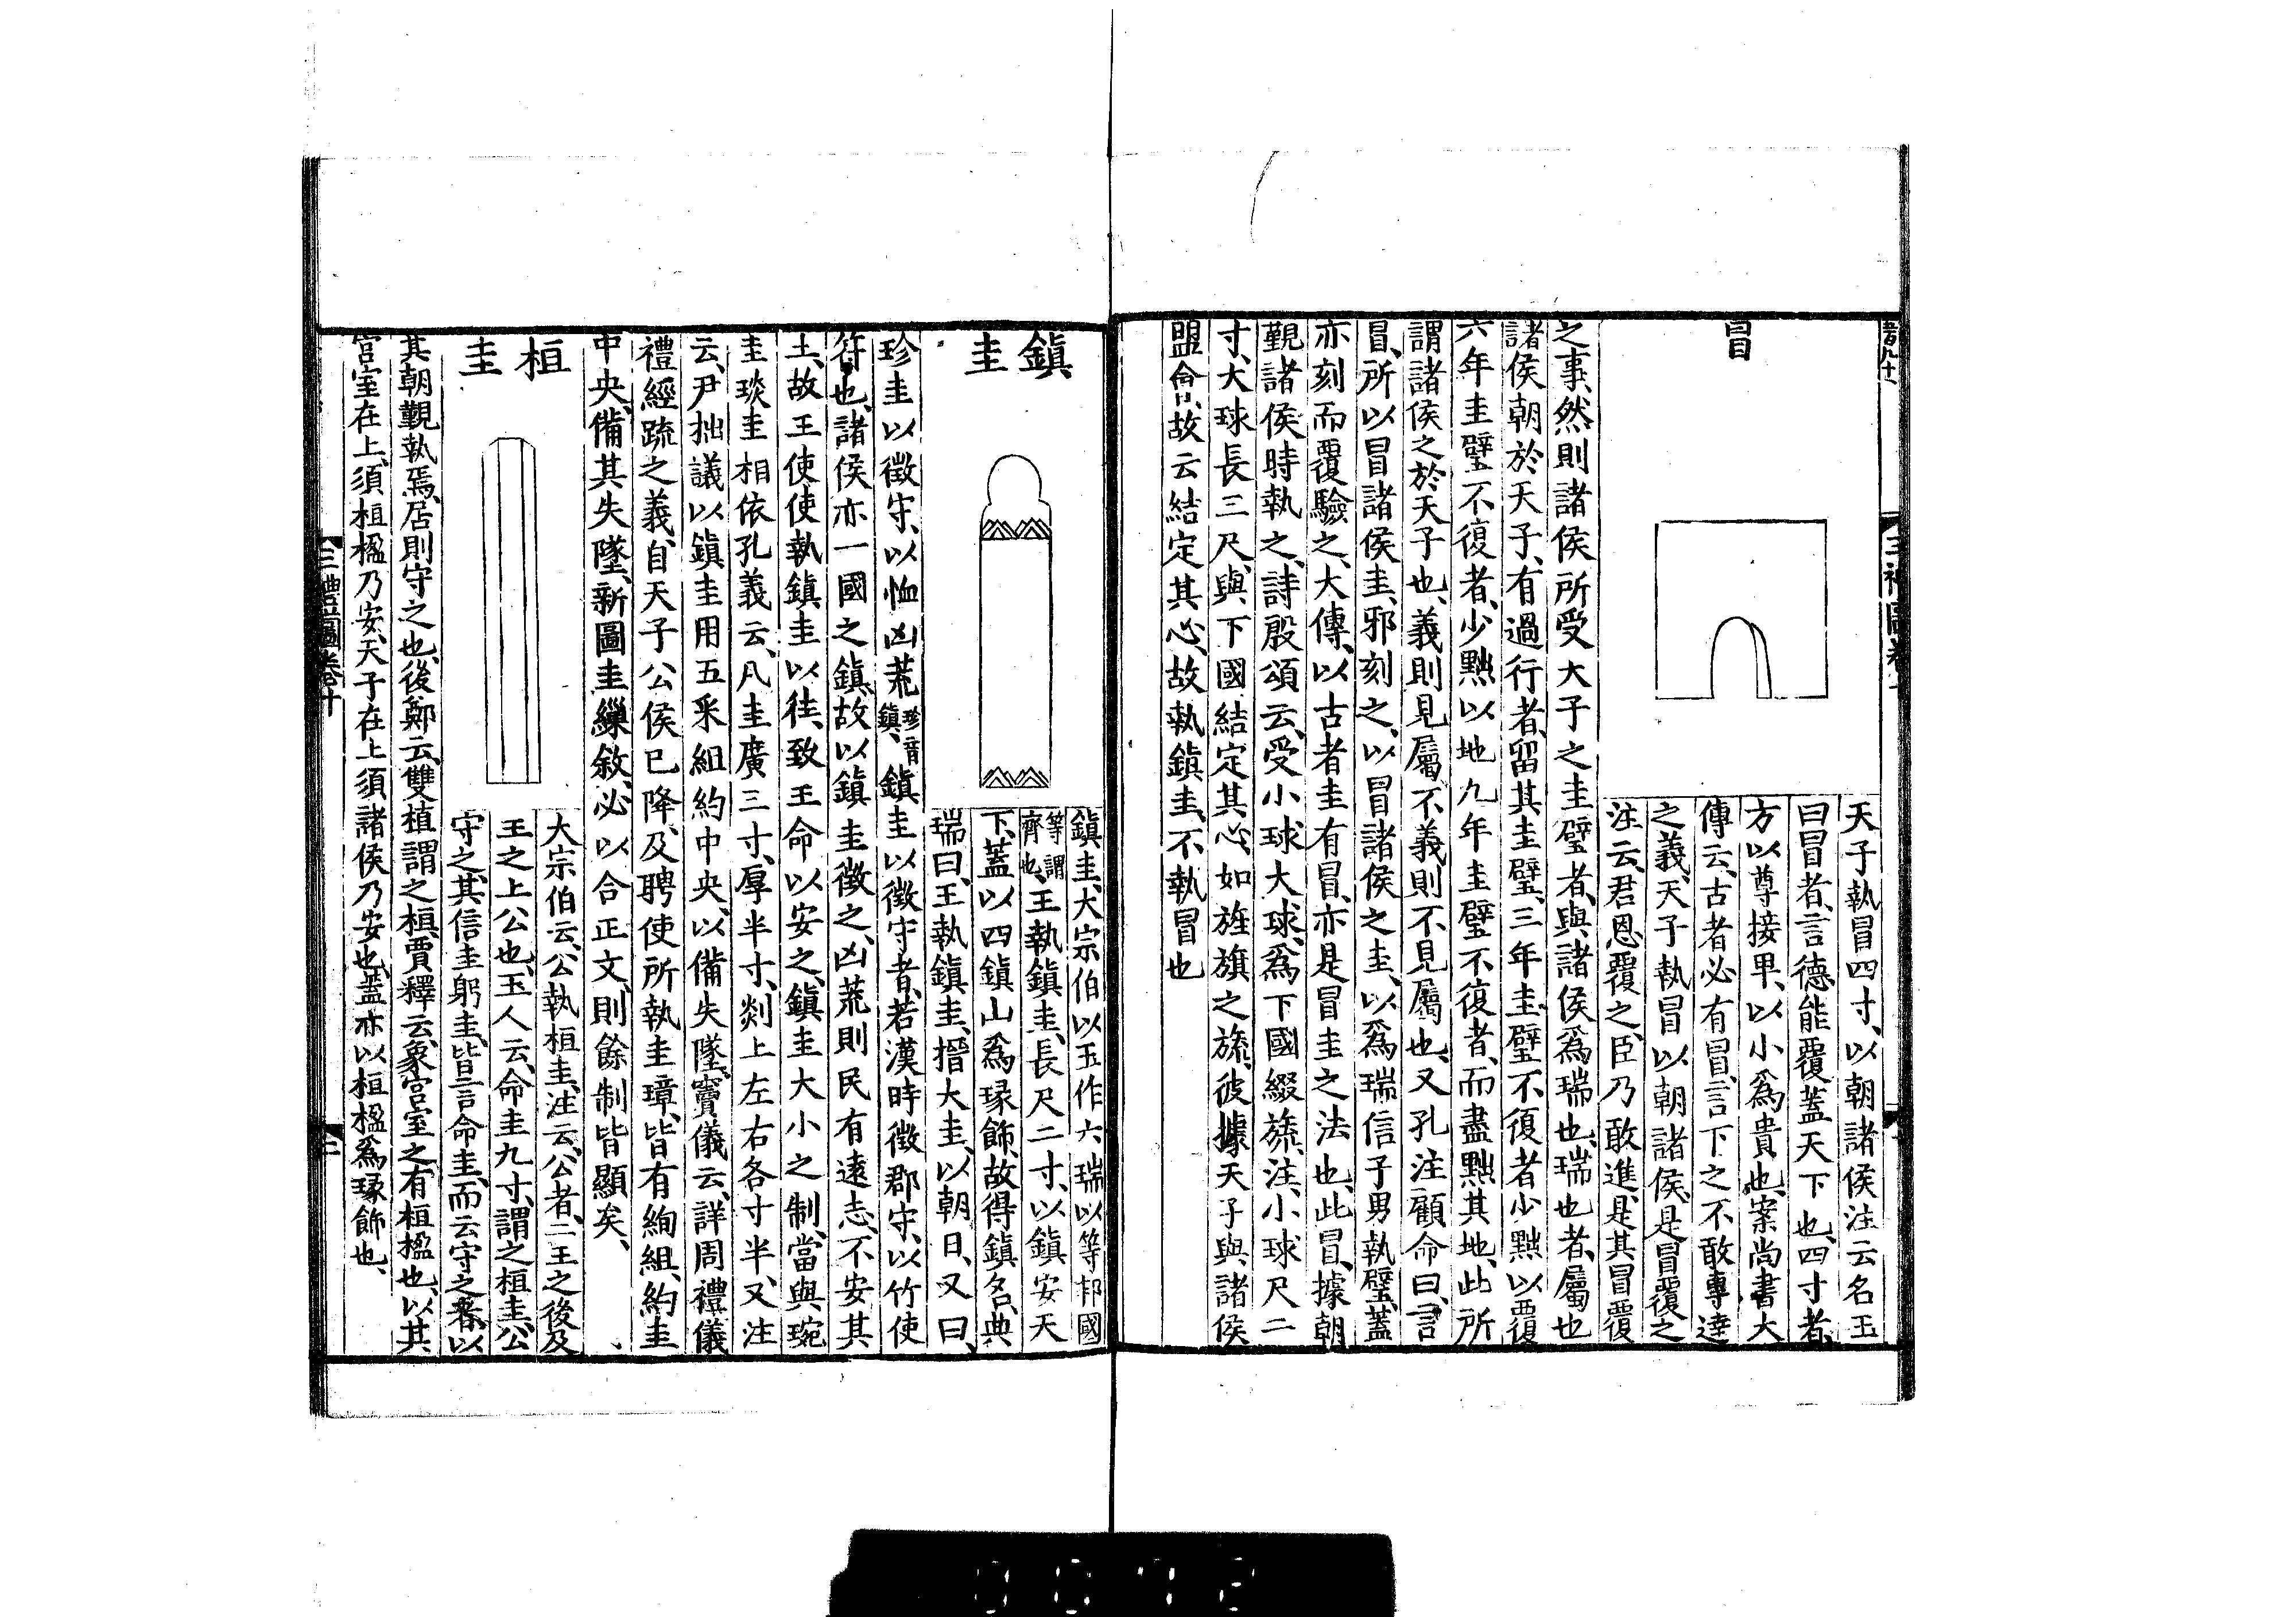 冒
天子執冒四寸、以朝諸侯注云名玉
曰冒者、言德能覆蓋天下也、四寸者、
方以尊接卑、以小爲貴也、案尚書大
傳云、古者必有冒、言下之不敢專達
之義、天子執冒以朝諸侯、是冒覆之
注云、君恩覆之、臣乃敢進、是其冒覆
之事、然則諸侯所受大子之圭璧者、與諸侯爲瑞也、瑞也者、屬也
諸侯朝於天子、有過行者、留其圭璧、三年圭璧不復者少黜以覆
六年圭璧不復者、少黜以地九年圭璧不復者、而盡黜其地、此所
謂諸侯之於天子也、義則見屬、不義則不見屬也、又孔注顧命曰、言
冒、所以冒諸侯圭、邪刻之、以冒諸侯之圭、以爲瑞信子男執璧、蓋
亦刻而覆驗之、大傳、以古者圭有冒、亦是冒圭之法也、此冒、據朝
覲諸侯時執之、詩殷頌云、受小球大球、爲下國綴旒、注、小球尺二
寸、大球長三尺、與下國結定其心、如旌旗之旒、彼據天子與諸侯
盟會、故云結定其心、故執鎮圭、不執冒也
鎮圭
鎮圭、大宗伯以玉作六瑞以等邦國
等謂齊也、王執鎮圭、長尺二寸、以鎮安天
下、蓋以四鎮山爲瑑飾、故得鎮名、典
瑞曰、王執鎮圭、搢大圭、以朝日、又曰、
珍圭以徵守、以恤凶荒珍音鎮、鎮圭以徵守者、若漢時徵郡守、以竹使
符也、諸侯亦一國之鎮、故以鎮圭徵之、凶荒則民有遠志、不安其
土、故王使使執鎮圭以往、致王命以安之、鎮圭大小之制、當與琬
圭琰圭相依孔義云、凡圭廣三寸、厚半寸、剡上左右各寸半、又注
云、尹拙議以鎮圭用五采組約中央、以備失墜、竇儀云、詳周禮儀
禮經疏之義、自天子公侯已降、及聘使所執圭璋、皆有絢組、約圭
中央、備其失墜、新圖圭繅敘、必以合正文、則餘制皆顯矣、
桓圭
大宗伯云、公執桓圭、注云、公者、二王之後及
王之上公也、玉人云、命圭九寸、謂之桓圭、公
守之、其信圭躬圭、皆言命圭、而云守之者、以
其朝覲執焉、居則守之也、後鄭云、雙植謂之桓、賈釋云、象宮室之有桓楹也、以其
宮室在上、須桓楹乃安、天子在上須諸侯乃安也、蓋亦以桓楹爲瑑飾也、
三禮圖卷十